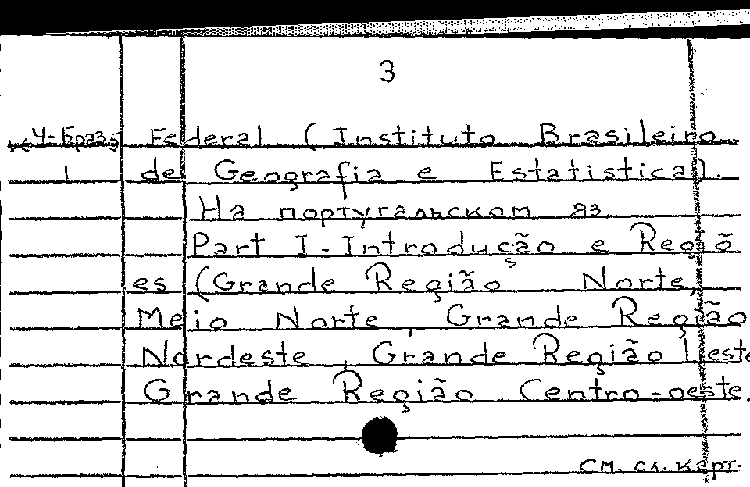 3
У-Браз Federal (Instituto Brasileiro
1 de Geografia e Estatistica).
На португальском яз.
Part I-Introdução e Regiõ
es (Grande Região Norte,
Meio Norte, Grande Região
Nordeste, Grande Região Leste
Grande Região Centro-oeste.
См. сл. карт.